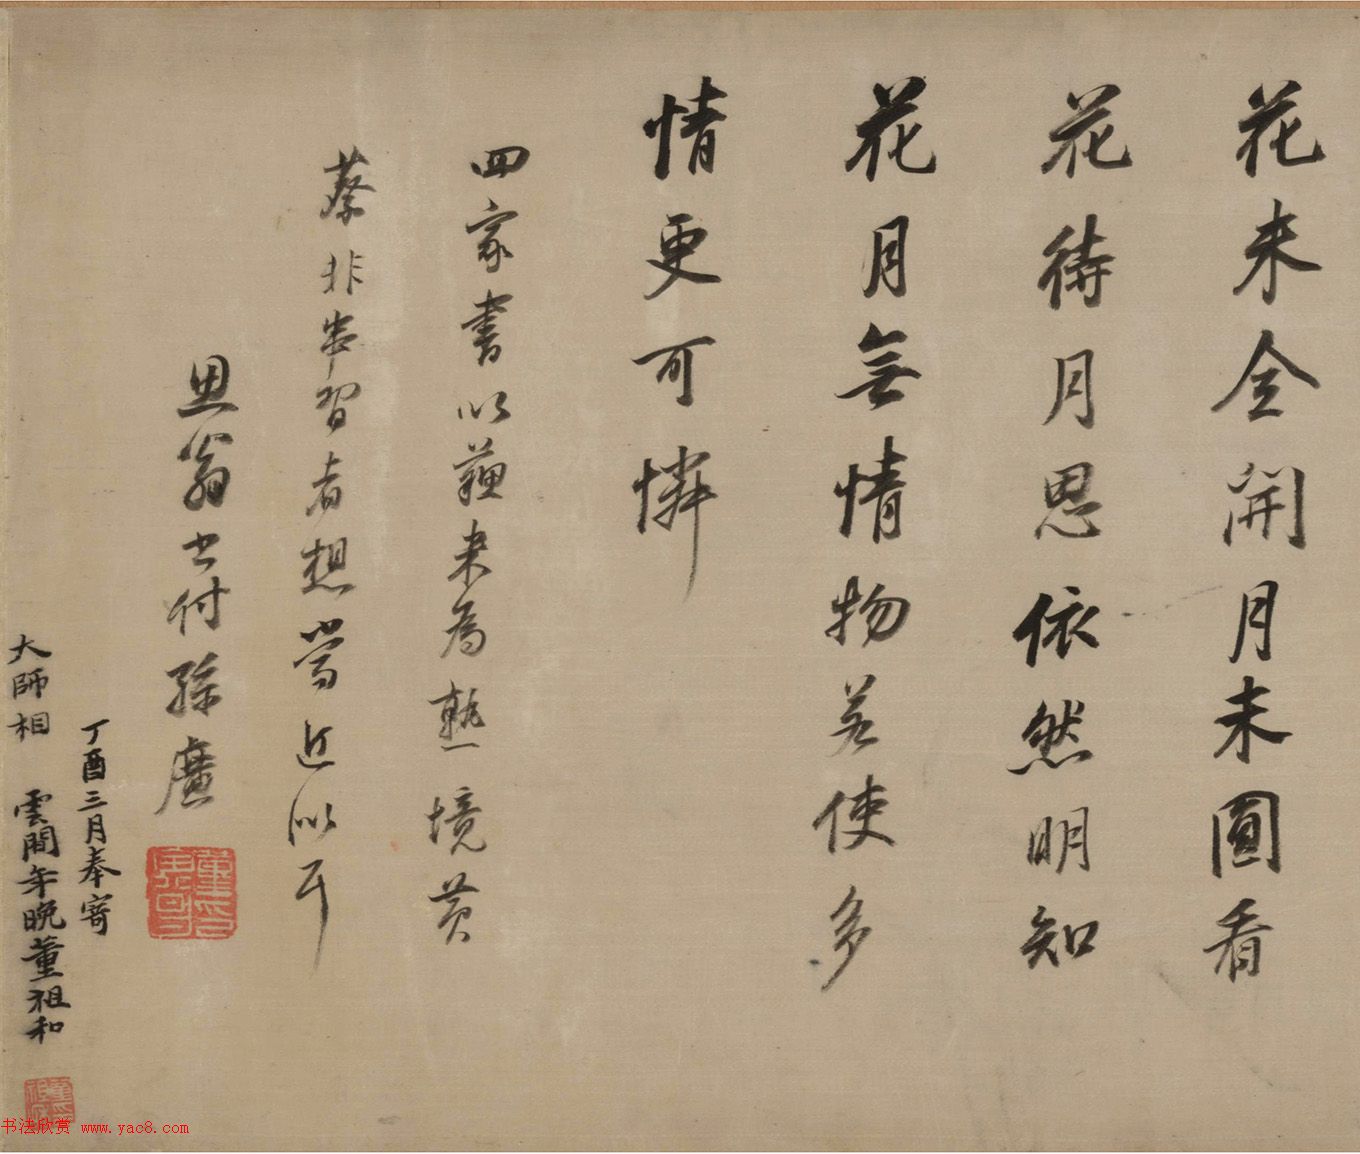 花未全開月未圓看
花待月思依然明知
花月無情物若使多
情更可憐
四家書以蘇米為熟境黃
蔡非串習者想當近似耳
思翁書付孫廣
丁酉三月奉寄
大師相 雲間年晚董祖和
书法欣赏 www.yac8.com